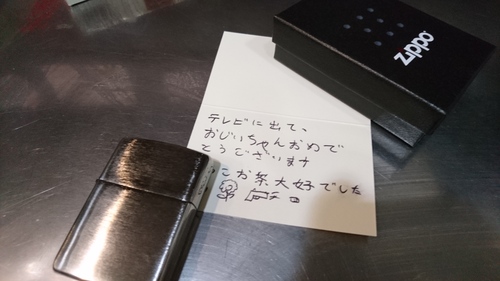 zippo
テレビに出て、
おじいちゃんおめで
とうございます
お茶大好でした